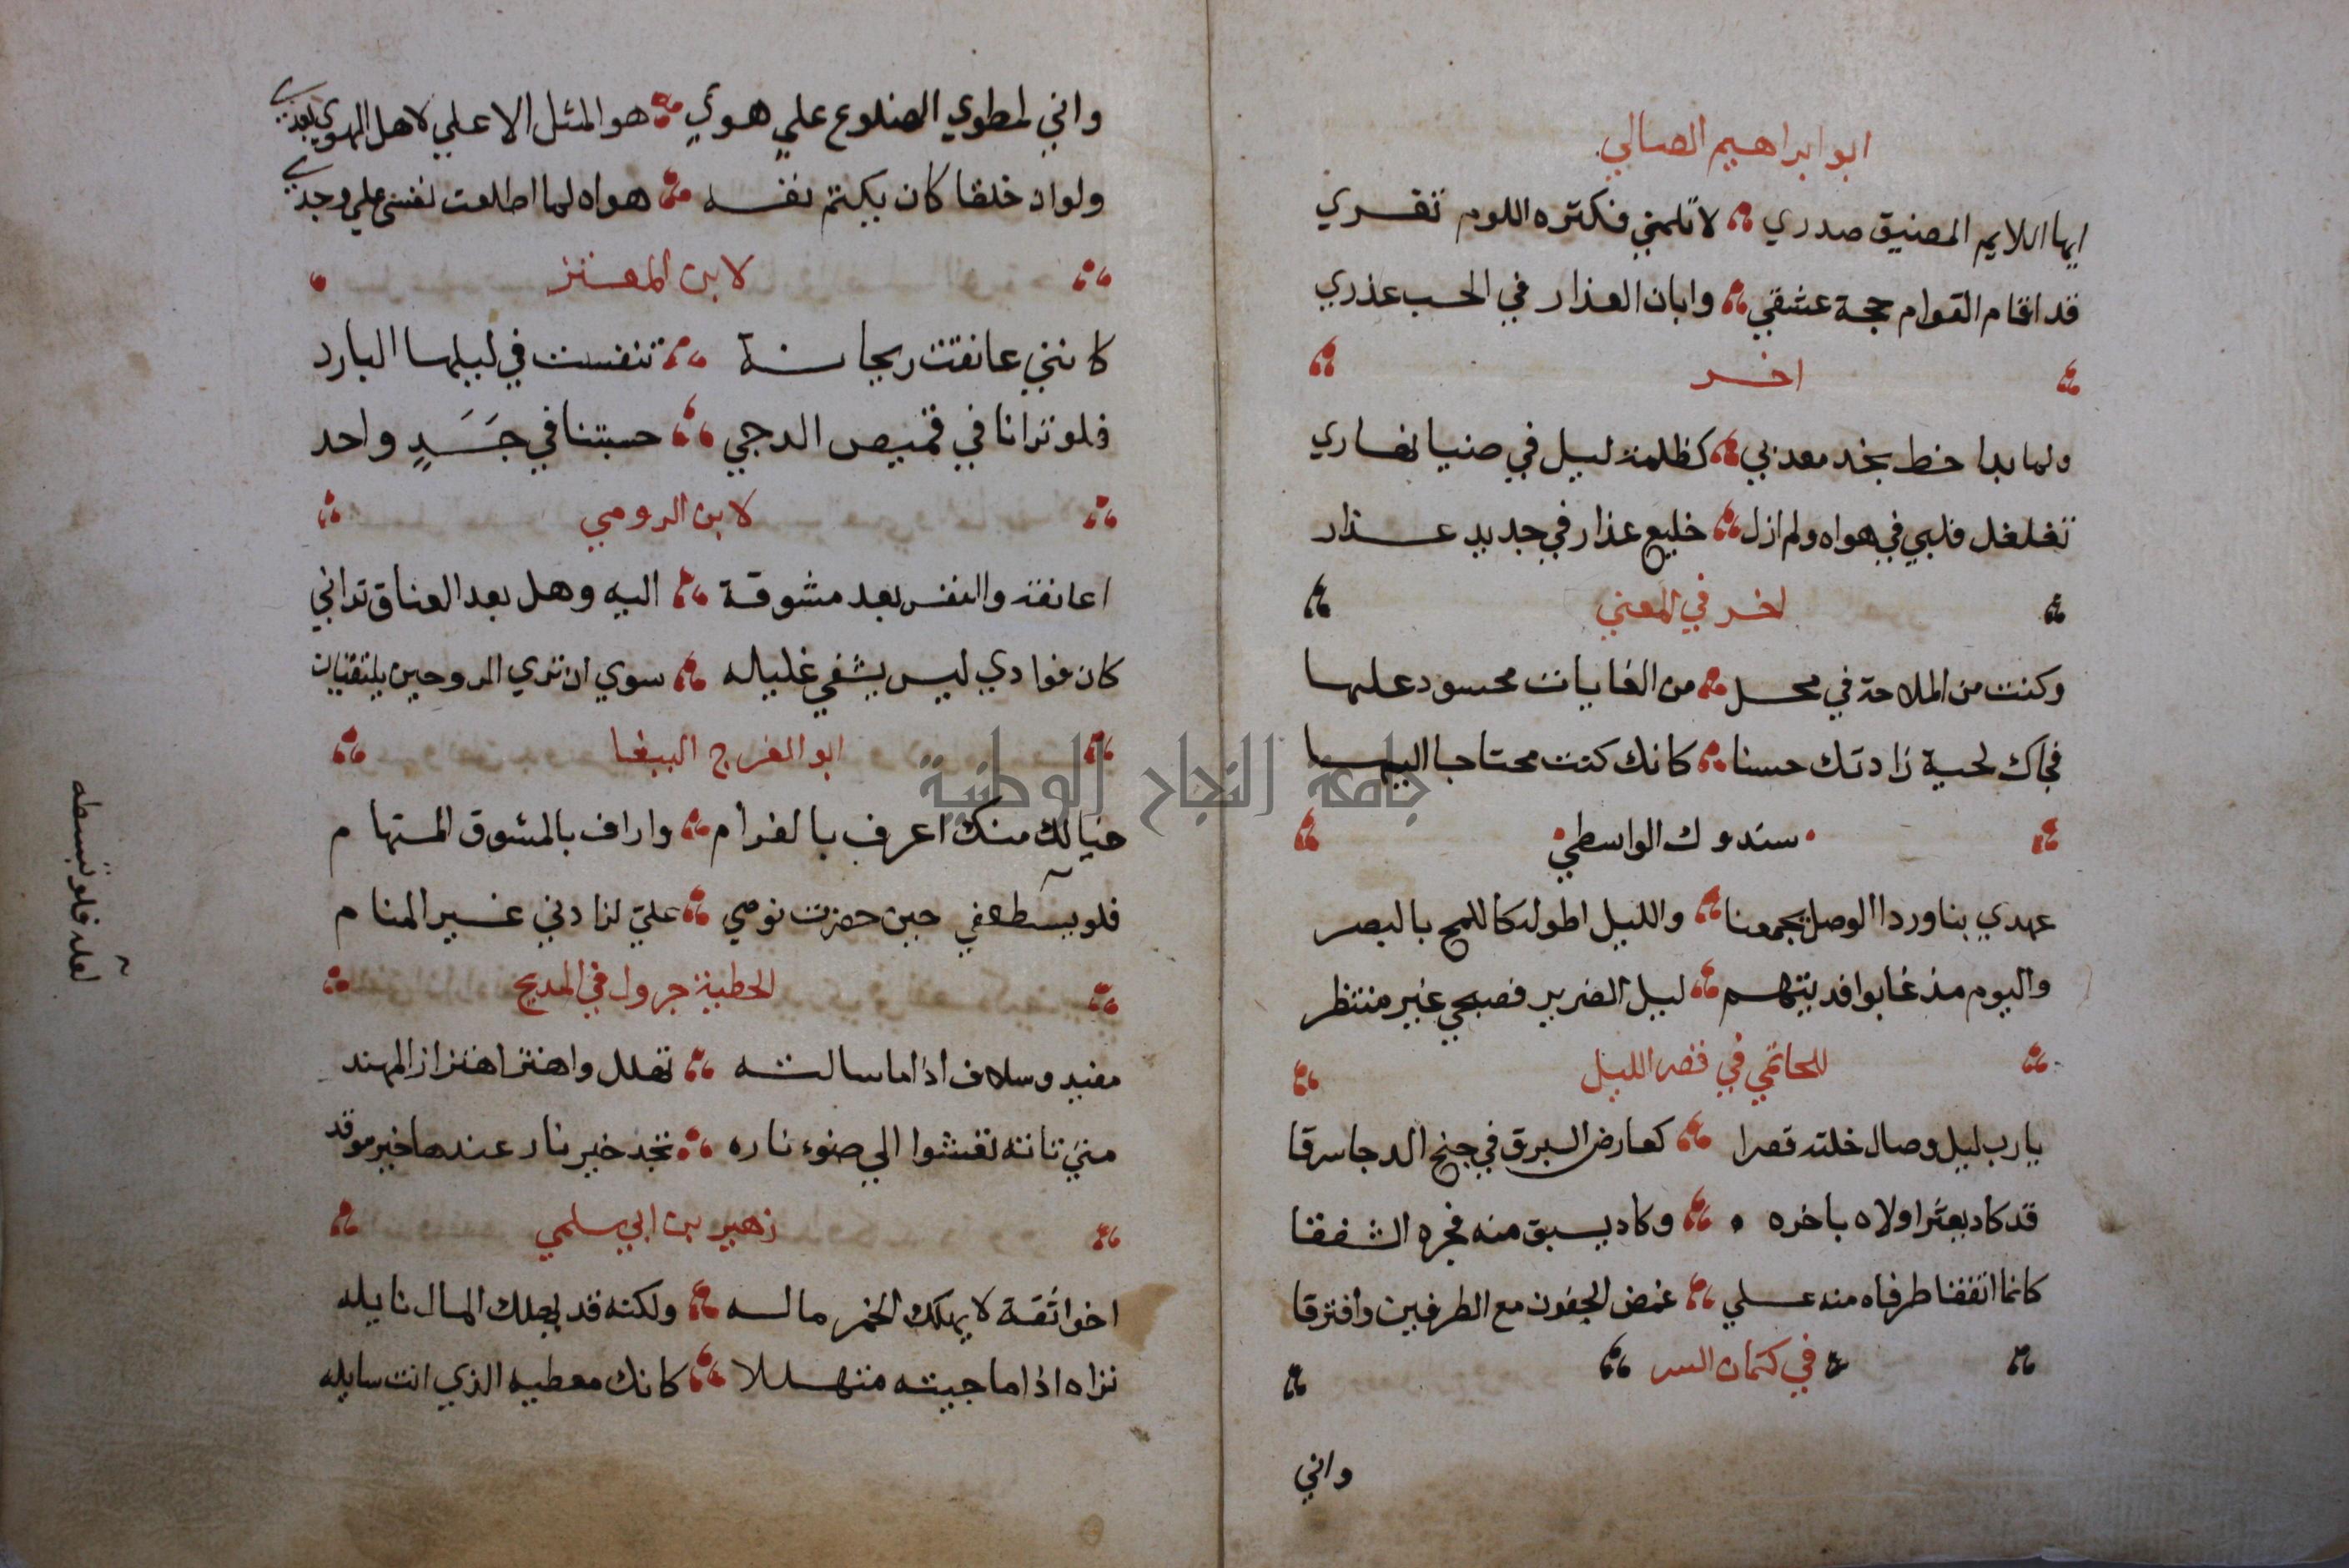 ابو ابراهيم الصالي
ايها اللايم المضيق صدري لا تلمني فكثره اللوم تغري
قد اقام القوام حجة عشقي وابان العذار في الحب عذري
اخر
ولما بدا خط بخد معذبي كظلمة ليل في ضيا نهاري
تغلغل قلبي في هواه ولم ازل خليع عذار في جديد عذار
اخر في المعني
وكنت من الملاحة في محل من الغايات محسود عليها
فجاك لحية زادتك حسنا كانك كنت محتاجا اليها
سندوك الواسطي
عهدي بنا وردا الوصل يجمعنا والليل اطوله كاللمح بالبصر
واليوم مذ غابوا فديتهم ليل الضرير فصبحي غير منتظر
للحاتمي في قصر الليل
يا رب ليل وصال خلته قصرا كعارض البرق في جنح الدجا سرقا
قد كاد يعثر اولاه باخره وكاد يسبق منه فجره الشفقا
كانما اتفقا طرفاه منه علي غمض الجفون مع الطرفين وافترقا
في كتمان السر
واني
واني لمطوي الضلوع علي هوي هو المثل الاعلي لاهل الهوي بعدي
ولو ان خلقا كان يكتم نفسه هواه لما اطلعت نفسي علي وجدي
لابن المعتز
كانني عانقت ريحانة تنفست في ليلها البارد
فلو ترانا في قميص الدجي حسبتنا في جَسَدٍ واحد
لابن الرومي
اعانقه والنفس بعد مشوقة اليه وهل بعد العناق تداني
كان فوادي ليس يشفي غليله سوي ان تري الروحين يلتقيان
ابو الفرج الببغا
خيالك منك اعرف بالغرام واراف بالمشوق المستهام
فلو يسطعفي حين حضرت نومي علي لزادني غير المنام
لعله فلو تبسطه
الحطيئة جرول في المديح
مفيد وسلاف اذا ما سالته تهلل واهتز اهتزاز المهند
متي تاته تعشوا الي ضوء ناره تجد خير نار عندها خير موقد
زهير بن ابي سلمي
اخوا ثقة لا يهلك الخمر ماله ولكنه قد يهلك المال نايله
تراه اذا ما جيته متهللا كانك معطيه الذي انت سايله
جامعة النجاح الوطنية